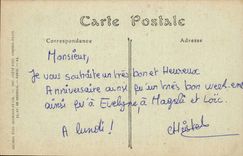 Carte Postale
Correspondance
Adresse
Monsieur,
Je vous souhaite un très bon et Heureux
Anniversaire ainsi qu'un très bon week-end
ainsi qu'à Evelyne, à Magali et Loïc.
A lundi !